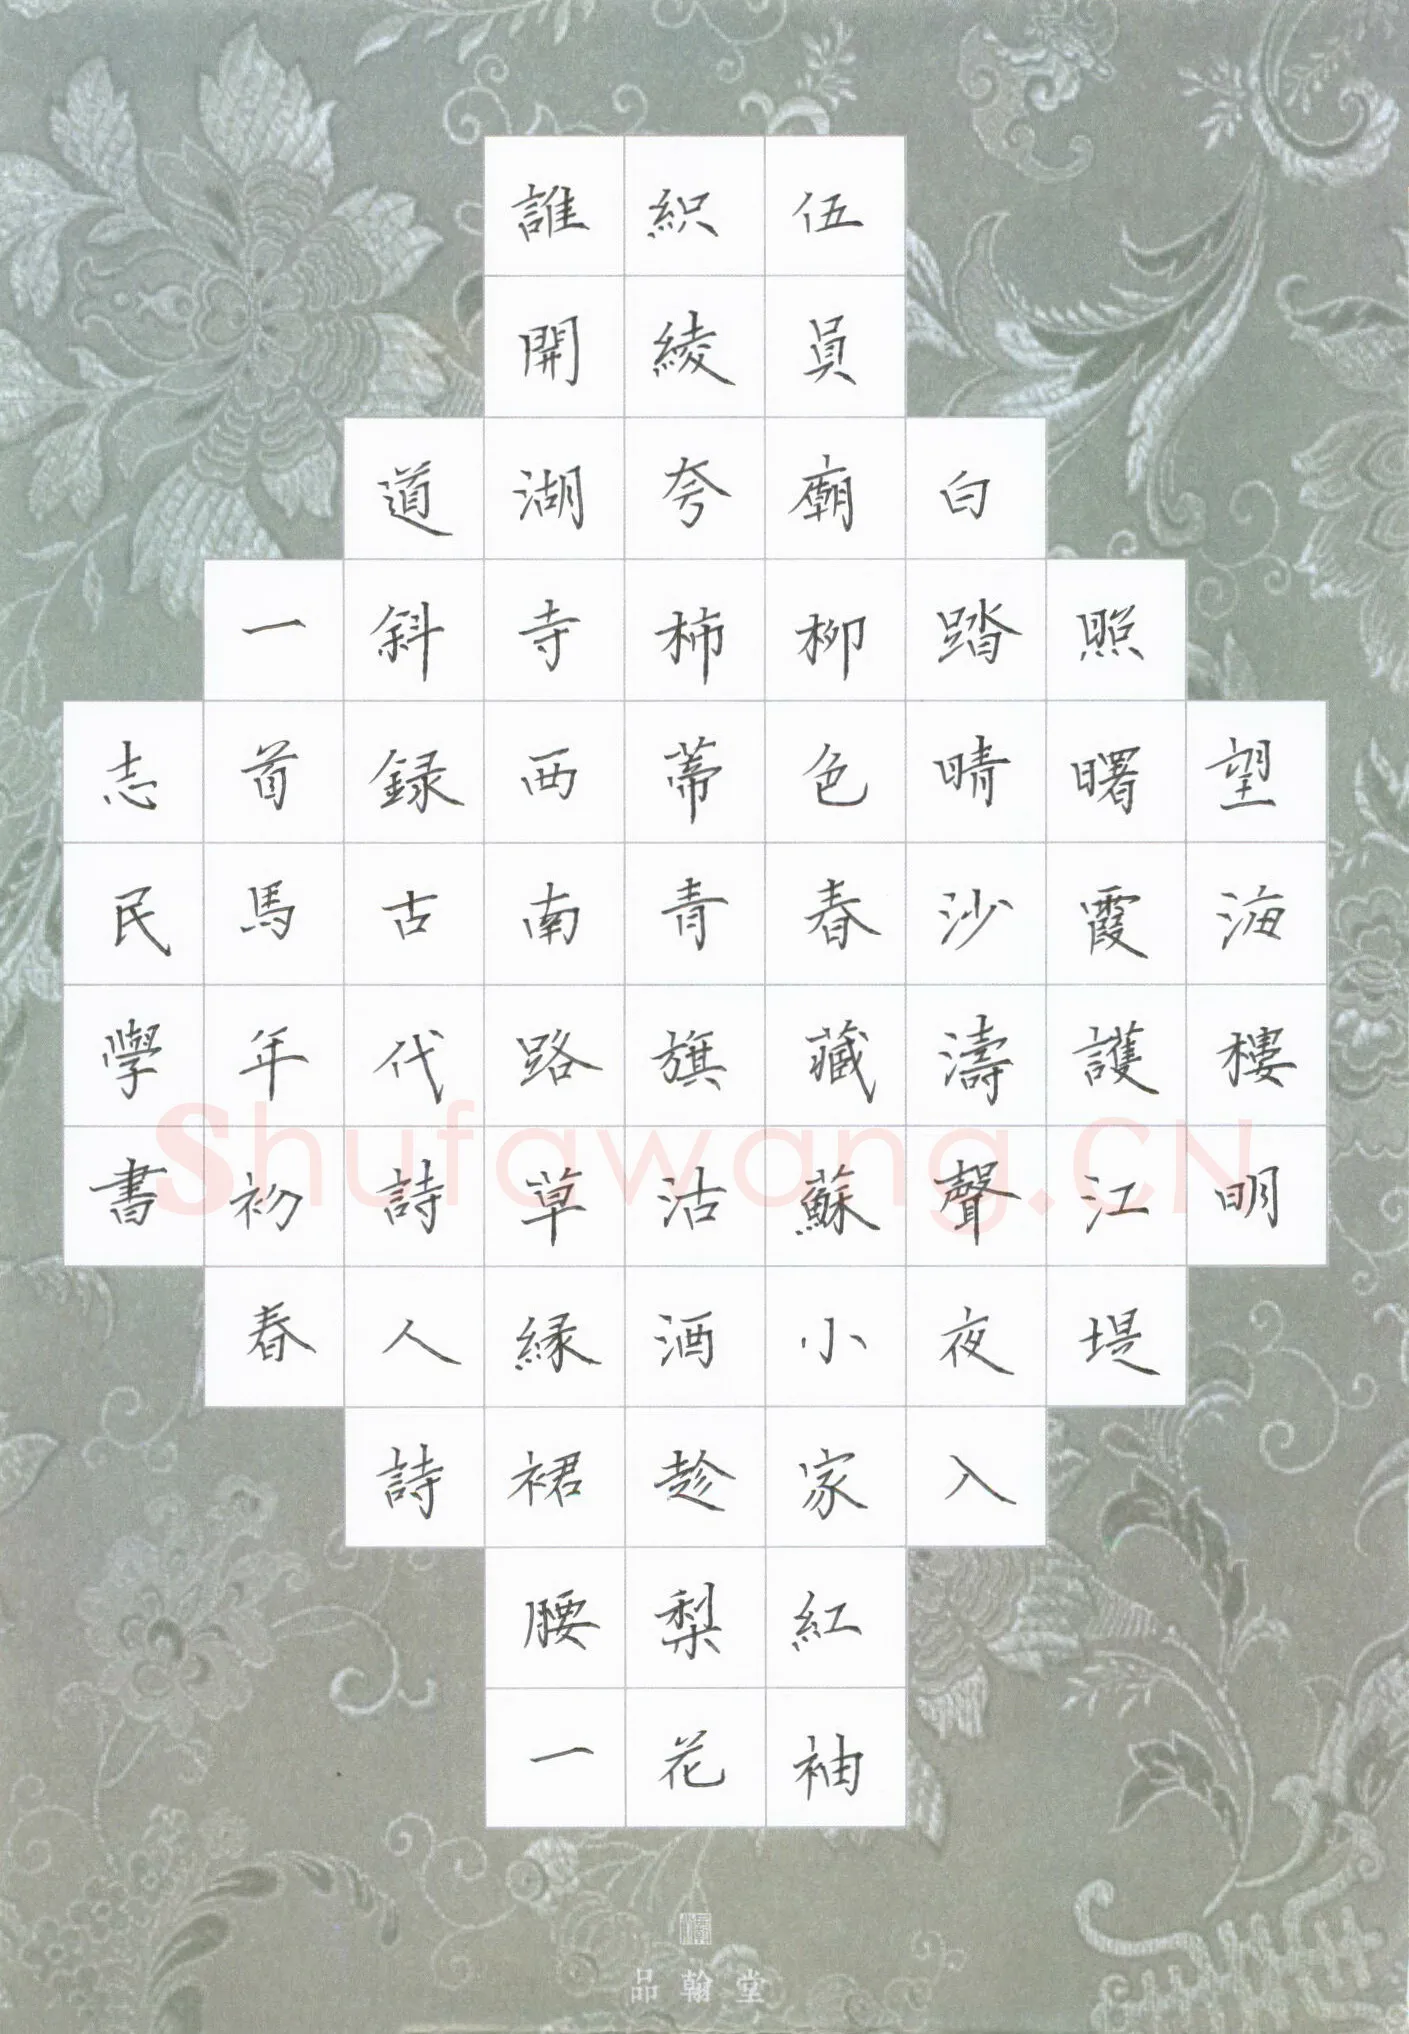 望海樓明
照曙霞護江堤
白踏晴沙濤聲夜入
伍員廟柳色春藏蘇小家紅袖
織綾夸柿蒂青旗沽酒趁梨花
誰開湖寺西南路草緑裙腰一
道斜録古代詩人詩
一首馬年初春
志民學書
品翰堂
Shufawang.CN